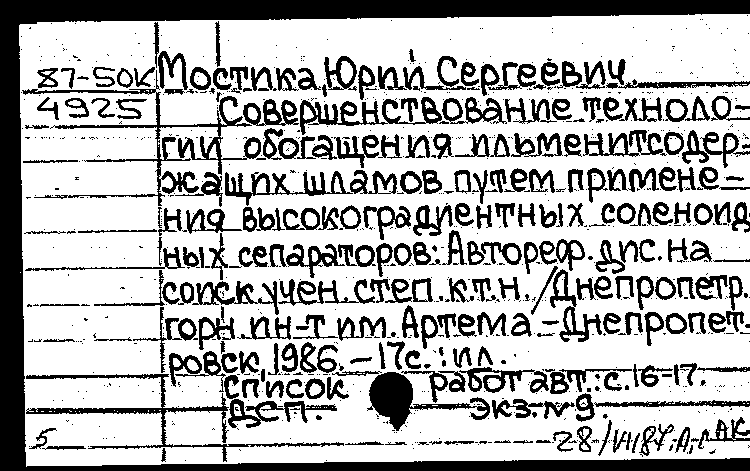 87-50К Мостика, Юрий Сергеевич.
4925 Совершенствование техноло-
гии обогащения ильменитсодер-
жащих шламов путем примене-
ния высокоградиентных соленоид-
ных сепараторов: Автореф. дис. на
соиск. учен. степ. к.т.н. / Днепропетр.
горн. ин-т им. Артема – Днепропет-
ровск, 1986. – 17с. : ил.
Список работ авт.: с. 16-17.
ДСП. экз. № 9.
5 28/VII87. А,С АК